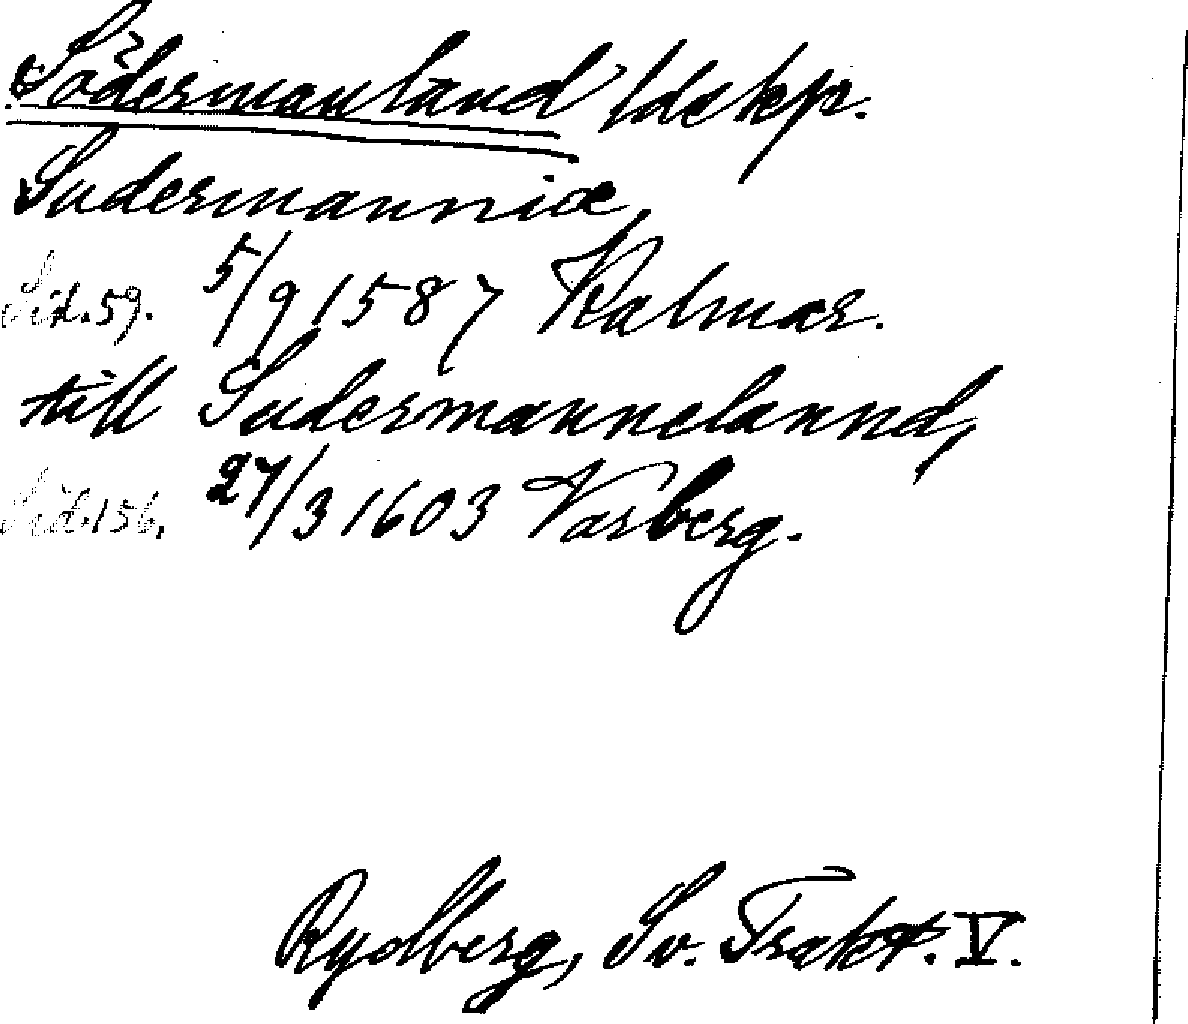 Södermanland ldskp.
Sudermanniæ,
Sid. 59. 5/9 1587 Kalmar.
till Sudermannelannd,
Sid. 156. 27/3 1603 Varberg.
Rydberg, Sv. Trakt. V.